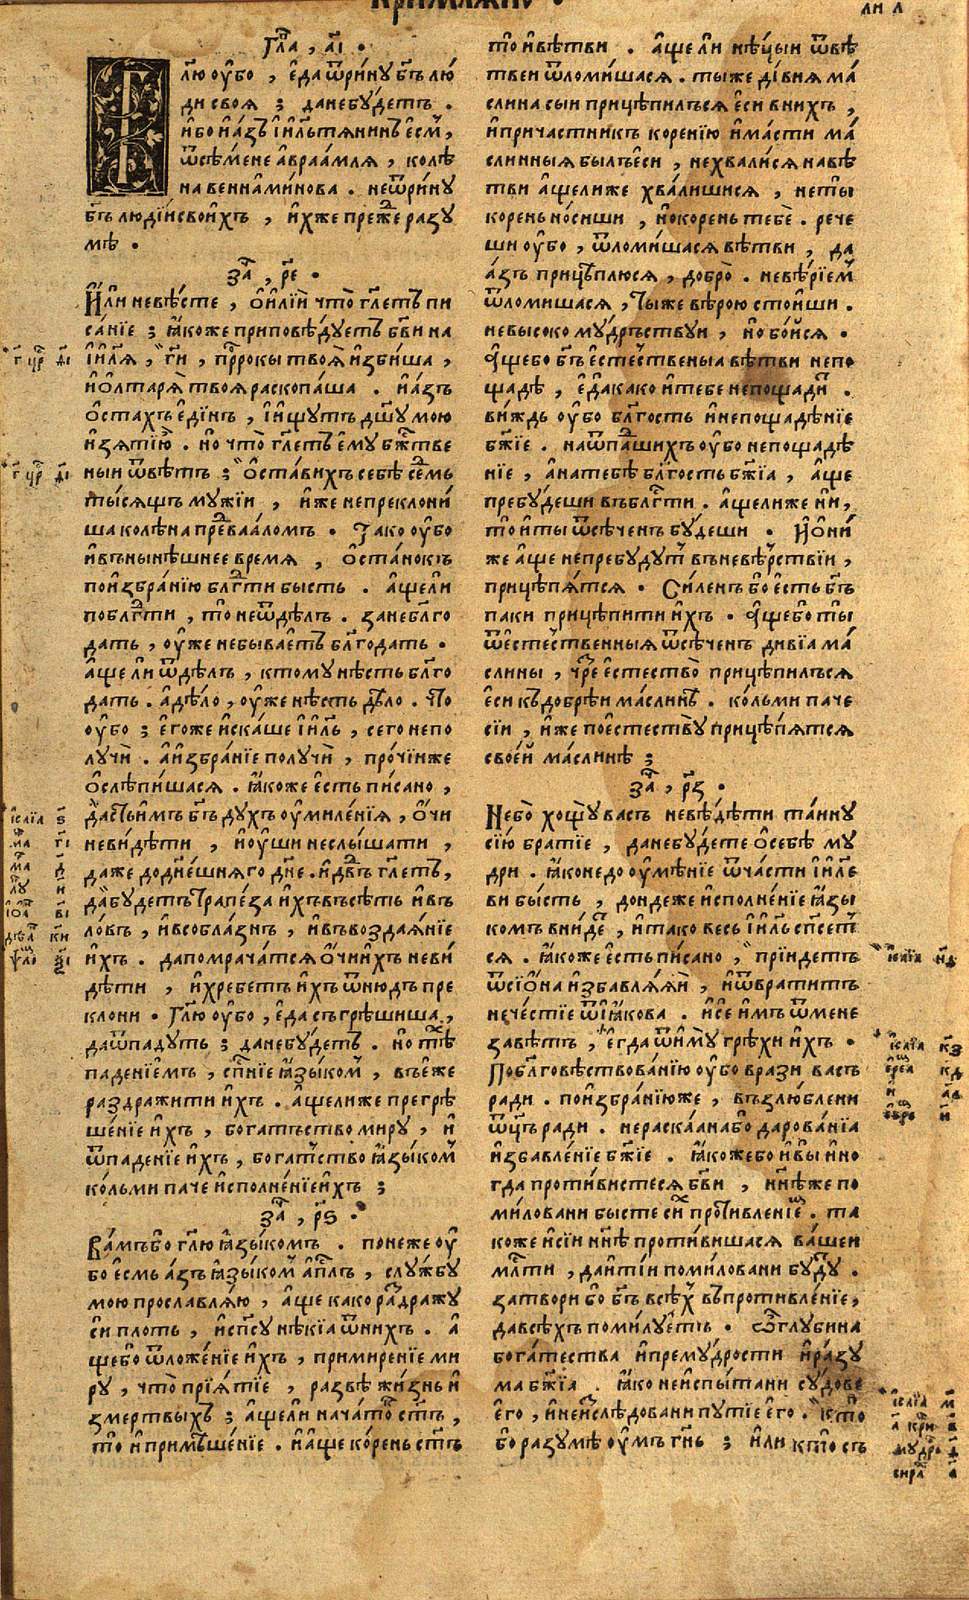 Кри́млѧномъ •
ли л҃
Гла҃, а҃і •
лю оу҆бо , є҆да ѿри́ну бг҃ъ лю́
ди своѧ ; данебꙋ́детъ .
и҆бо и҆а́зъ і҆и҃льтѧнинъ є҆см̀,
ѿсѣ́мене авраа́млѧ , колѣ
на венїами́нова . неѿри́ну
бг҃ъ люді́й свои́хъ , и҆хже пре́же разу
мѣ •
за҃ , р҃е •
И҆́ли невѣ́сте , ѻ҆и҆лїѝ что̀ гл҃етъ пи
са́нїе ; ꙗ҆́коже приповѣ́дуетъ бг҃ви на
і҆и҃лѧ , гд҃и , прⷪ҇роки твоѧ̀ и҆зби́ша ,
и҆ѻлтарѧ̀ твоѧ раскопа́ша . и҆а҆́зъ
ѻ҆ста́хъ є҆ди́нъ , і҆и҆́щутъ дш҃у мою
и҆зѧтїю̀ . но что̀ гл҃етъ є҆му бж҃тве
ныи ѿвѣ́тъ ; ѻ҆ста́вихъ себѣ̀ се́дмь
ты́сѧщъ му́жїи , и҆́же непреклони́
ша колѣ́на пре́дваа́ломъ . Та́ко оу҆бо
и҆въны́нѣшнее времѧ , ѻ҆ста́нокъ
пои҆збра́нїю блгⷣти бысть . а҆́щели
поблгⷣти , то неѿдѣ́лъ . занеблг҃о
дать , оу҆же небыва́етъ блг҃одать .
а҆́ще ли ѿдѣ́лъ , ктому нѣ́сть блг҃о
дать . а҆дѣ́ло , оу҆же нѣ́сть дѣ́ло . Что
оу҆бо ; є҆го́же и҆ска́ше і҆и҃ль , сего непо
лучѝ . а҆и҆збра́нїе получѝ , про́чїи же
ѻ҆слѣпи́шасѧ . ꙗ҆́коже є҆сть писано ,
дастъ и҆́мъ бг҃ъ ду́хъ оу҆миле́нїѧ , ѻ҆́чи
неви́дѣти , и҆оу҆́ши неслы́шати ,
даже додне́шнѧго дн҃е . и҆дв҃дъ гл҃етъ ,
да̀бу́детъ трапе́за и҆́хъ въсѣ́ть и҆въ
ло́въ , и҆всобла́знъ , и҆въвоздаѧ́нїе
и҆́хъ . дапомрача́тсѧ ѻ҆́чи и҆́хъ неви́
дѣти , и҆хребе́тъ и҆́хъ ѿню́дъ пре
клони . Гл҃ю оу҆бо , є҆да съгрѣши́ша ,
даѿпаду́тъ ; данебу́детъ . но тѣ́хъ
паденїемъ , сп҃нїе ꙗ҆зы́комъ , въ є҆́же
раздражи́ти и҆́хъ . а҆́щелиже прегрѣ
ше́нїе и҆́хъ , богатъство миру , и҆
ѿпаде́нїе и҆́хъ , богатъство ꙗ҆зы́комъ
ко́льми паче и҆сполне́нїе и҆́хъ ;
за҃ , р҃ѕ •
Ва́мъбо гл҃ю ꙗ҆зы́комъ . поне́же оу҆
бо є҆смь а҆́зъ ꙗ҆зы́комъ а҆пⷭ҇лъ , слу́жбу
мою прославлѧ́ю , а҆́ще како ра́здражу
сѝ плоть , и҆сп҃су нѣ́кїа ѿни́хъ . а҆́
щебо ѿложе́нїе и҆́хъ , примирение ми
ру , что̀ прїѧ́тїе , ра́звѣ жи́знь и҆
змертвы́хъ ; а҆́щели нача́токъ ст҃ъ ,
то и҆ примѣ́шенїе . и҆а҆́ще ко́рень ст҃ъ
то и҆вѣ́тви . а҆́ще ли нѣ́цыи ѿвѣ́
твеи ѿломи́шасѧ . тыже ди́вїѧ ма́
слина сыи прицѣпи́лъсѧ є҆си вни́хъ ,
и҆прича́стникъ коренїю и҆ма́сти ма́
сли́нныѧ бы́лъ є҆си , нехвали́сѧ навѣ́
тви а҆́щелиже хва́лишисѧ , неты̀
корень но́сиши , и҆окорень тебѐ . рече
ши оу҆бо , ѿломи́шасѧ вѣ́тви , да
а҆́зъ прицѣплю́сѧ , добро̀ . невѣ́рїемъ
ѿломишасѧ , тыже вѣрою стои́ши .
невысо́ко му́дръствуи , но бо́исѧ .
А҆́щебо бг҃ъ є҆сте́ственыа вѣ́тви непо
щадѣ , є҆да́како и҆тебе непощади́тъ .
ви́ждь оу҆бо блг҃ость и҆непощадѣ́нїе
бж҃їе . наѿпа́дшихъ оу҆бо непощадѣ́
нїе , а҆натебѣ̀ блг҃ость бж҃їа , а҆́ще
пребу́деши въблгⷣти . а҆́щелиже ни ,
то и҆ты̀ ѿсѣ́ченъ бу́деши . И҆ѻнѝ
же а҆́ще непребудутъ въневѣ́рствїи ,
прицѣпѧ́тсѧ . Си́ленъ бо є҆сть бг҃ъ
паки прицѣпи́ти и҆́хъ . А҆́щебо ты̀
ѿесте́ственныѧ ѿсѣ́ченъ ди́вїа ма́
слины , чре́зъ є҆стество̀ прицѣпи́лъсѧ
є҆си къ до́брѣи ма́слинѣ . ко́льми паче
сїи , и҆́же поестеству̀ прицѣ́пѧтсѧ
свое́й ма́слинѣ ;
за҃ , р҃з •
Небо̀ хощу̀ васъ невѣ́дѣти та́ину
сїю̀ бра́тїе , данебу́дете ѻ҆себѣ̀ му
дри . ꙗ҆́ко недоумѣ́нїе ѿча́сти і҆и҃ле
ви бы́сть , дондеже и҆сполне́нїе ꙗ҆зы
комъ вни́детъ , и҆тако весь і҆и҃ль сп҃сет
сѧ . ꙗ҆́коже є҆сть пи́сано , прїидетъ
ѿсїѡ́на и҆збавлѧ́ѧй , и҆ѿврати́тъ
нече́стїе ѿꙗ҆́кова . и҆се и҆́мъ ѿмене
завѣ́тъ , є҆гда ѿиму̀ грѣхи и҆́хъ .
Поблг҃овѣ́ствованїю оу҆бо врази васъ
ради . пои҆збра́нїюже , възлю́блени
ѿц҃ъ ради . нераска́анабо дарова́нїа
и҆збавле́нїе бж҃їе . ꙗ҆́кожебо и҆вы и҆но
гда проти́вистесѧ бг҃ви , нн҃ѣже по
ми́ловани бысте си́хъ проти́вленїемъ . та
коже и҆сїи нн҃ѣ проти́вишасѧ ва́шеи
млⷭ҇ти , даи҆ті́и поми́ловани бу́дутъ .
затвори бо бг҃ъ всѣ́хъ въпротивле́нїе ,
давсѣ́хъ поми́луетъ . Ѽглубина
бога́тества и҆прему́дрости и҆разу
ма бж҃їа . ꙗ҆́ко неиспы́тани су́дове
є҆го , и҆неи́слѣ́довани путїе є҆го . кто̀
бо разумѣ оу҆мъ гн҃ь ; и҆ли кто̀ съ